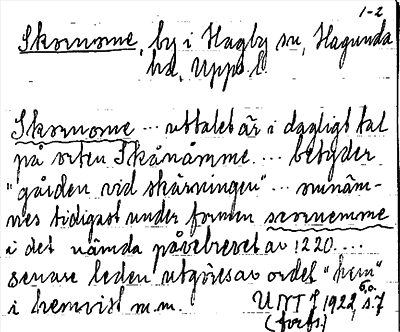 1-2
Skornome, by i Hagby sn, Hagunda
hd, Upps. l.
Skornome ... uttalet är i dagligt tal
på orten Skånåmme. ... betyder
"gården vid skärningen" ... omnäm-
nes tidigast under formen scornemme
i det nämda påvebrevet av 1220. ...
senare leden utgöres av ordet "hem"
i hemvist m.m. UNT 1922, s.7
(forts)